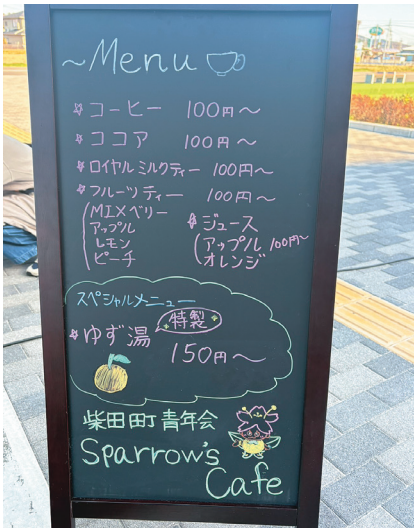 ~Menu
☆コーヒー 100円~
☆ココア 100円~
☆ロイヤルミルクティー 100円~
☆フルーツティー 100円~
MIXベリー
アップル
レモン
ピーチ
☆ジュース
アップル 100円~
オレンジ
スペシャルメニュー
☆ゆず湯 特製
150円~
柴田町青年会
Sparrow's
Cafe